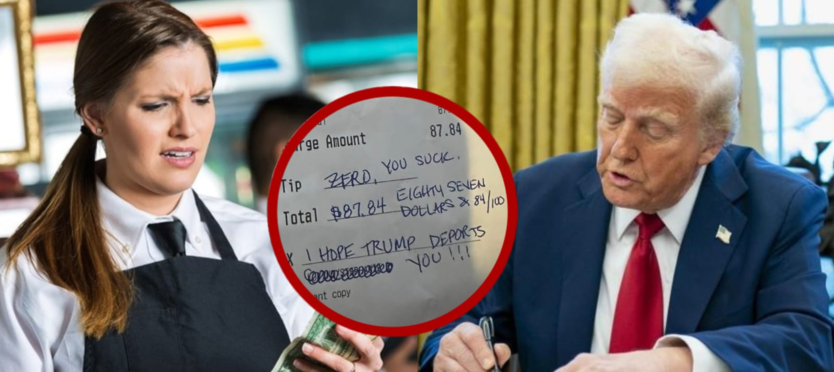 rge Amount 87.84
Tip ZERO, YOU SUCK.
Total $87.84 EIGHTY SEVEN
DOLLARS & 84/100
X I HOPE TRUMP DEPORTS
YOU!!!
nt copy